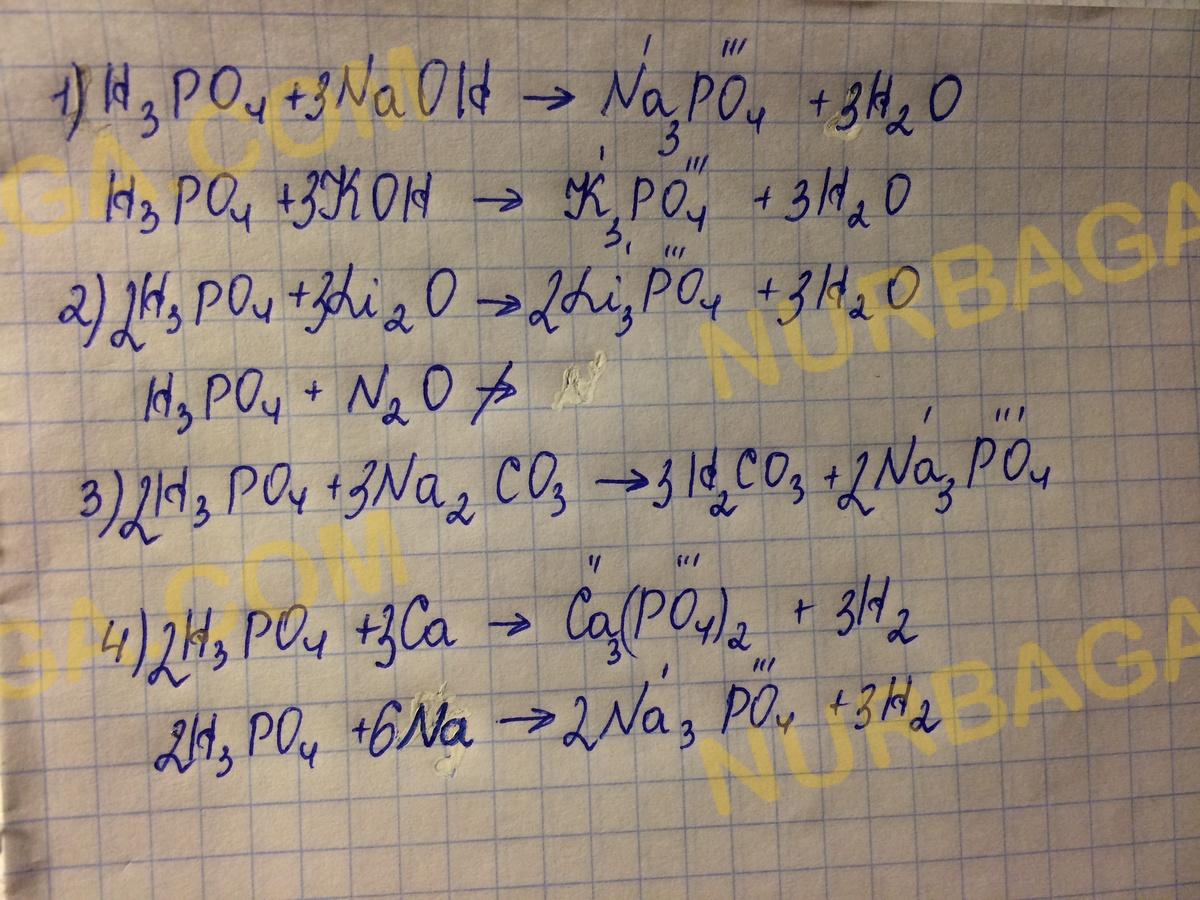 1) H₃PO₄ + 3NaOH → Na₃PO₄ + 3H₂O
H₃PO₄ + 3KOH → K₃PO₄ + 3H₂O
2) 2H₃PO₄ + 3Li₂O → 2Li₃PO₄ + 3H₂O
H₃PO₄ + N₂O ↛
3) 2H₃PO₄ + 3Na₂CO₃ → 3H₂CO₃ + 2Na₃PO₄
4) 2H₃PO₄ + 3Ca → Ca₃(PO₄)₂ + 3H₂
2H₃PO₄ + 6Na → 2Na₃PO₄ + 3H₂
GA.COM
NURBAGA
GA.COM
NURBAGA